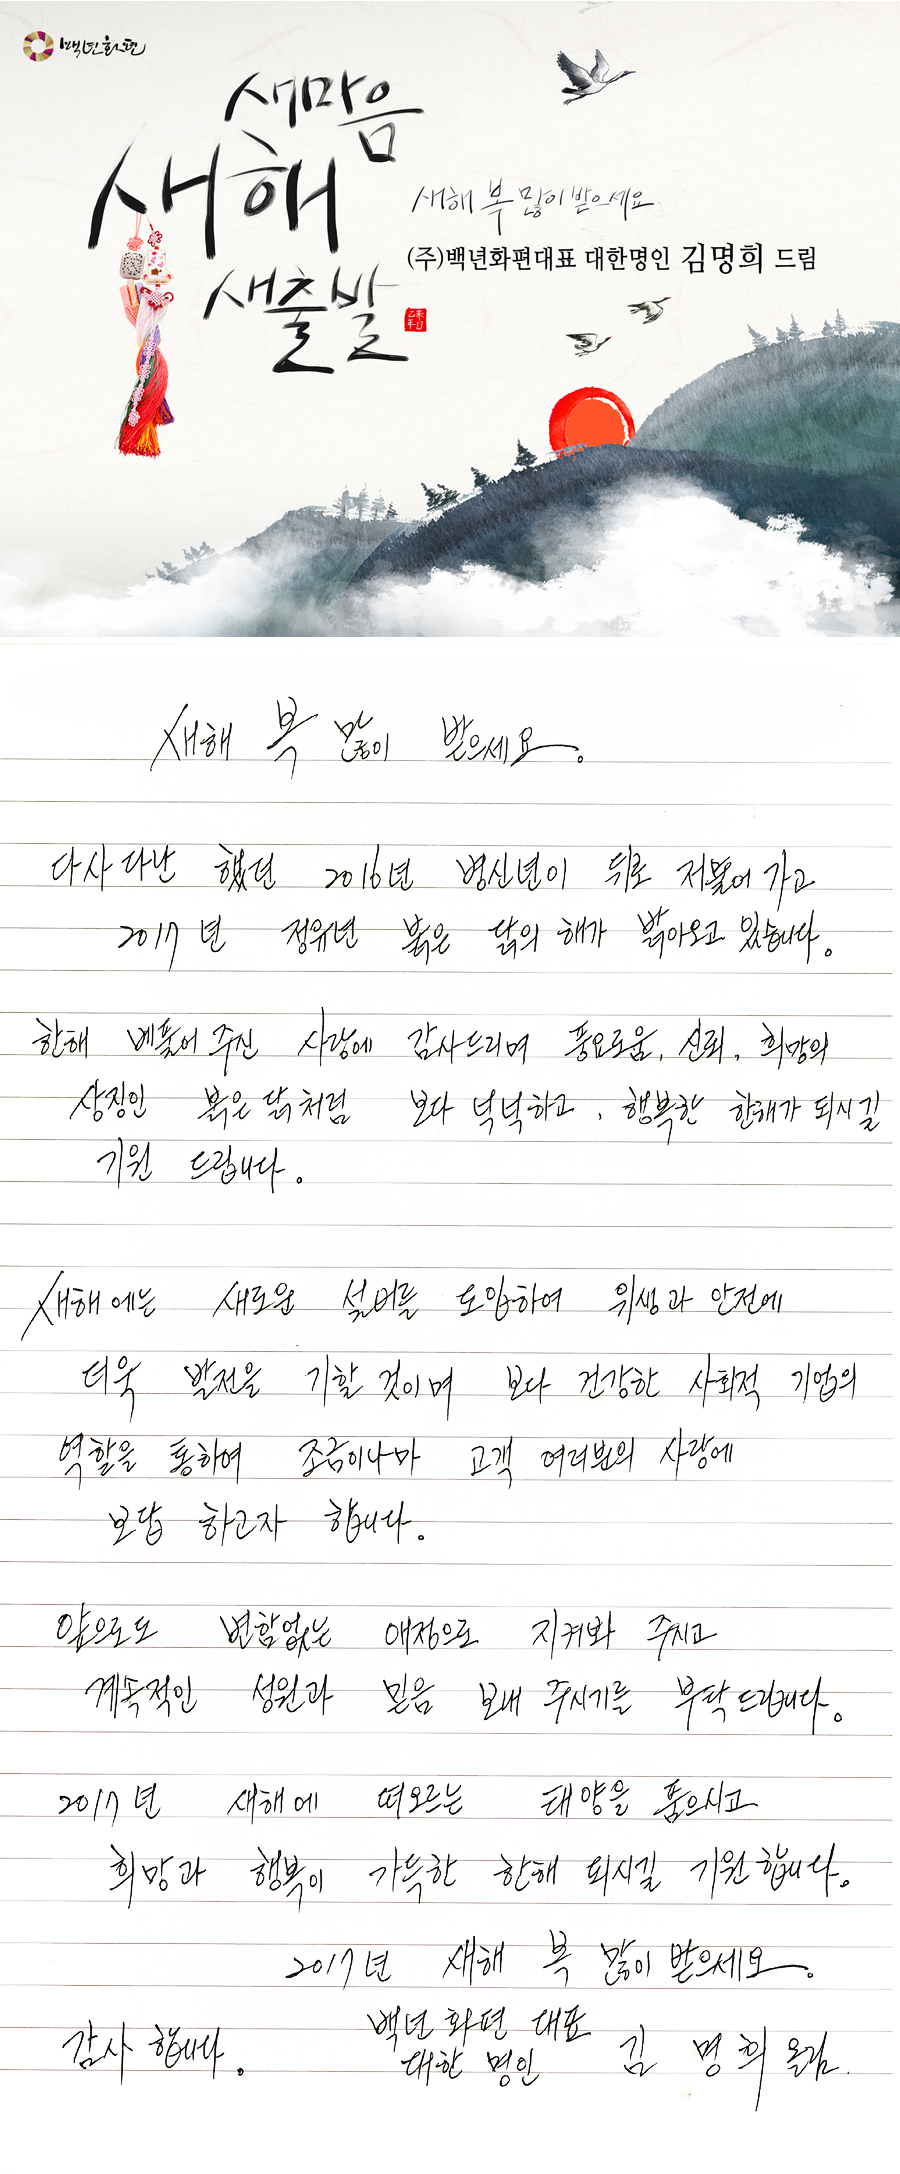 백년화편
새마음
새해
새출발
새해 복 많이 받으세요
(주)백년화편대표 대한명인 김명희 드림
새해 복 많이 받으세요.
다사다난 했던 2016년 병신년이 뒤로 저물어 가고
2017년 정유년 붉은 닭의 해가 밝아오고 있습니다.
한해 베풀어 주신 사랑에 감사드리며 풍요로움, 신뢰, 희망의
상징인 붉은 닭처럼 보다 넉넉하고, 행복한 한해가 되시길
기원 드립니다.
새해에는 새로운 설비를 도입하여 위생과 안전에
더욱 발전을 기할 것이며 보다 건강한 사회적 기업의
역할을 통하여 조금이나마 고객 여러분의 사랑에
보답 하고자 합니다.
앞으로도 변함없는 애정으로 지켜봐 주시고
계속적인 성원과 믿음 보내 주시기를 부탁드립니다.
2017년 새해에 떠오르는 태양을 품으시고
희망과 행복이 가득한 한해 되시길 기원합니다.
2017년 새해 복 많이 받으세요.
감사 합니다. 백년화편 대표
대한 명인 김 명 희 올림.